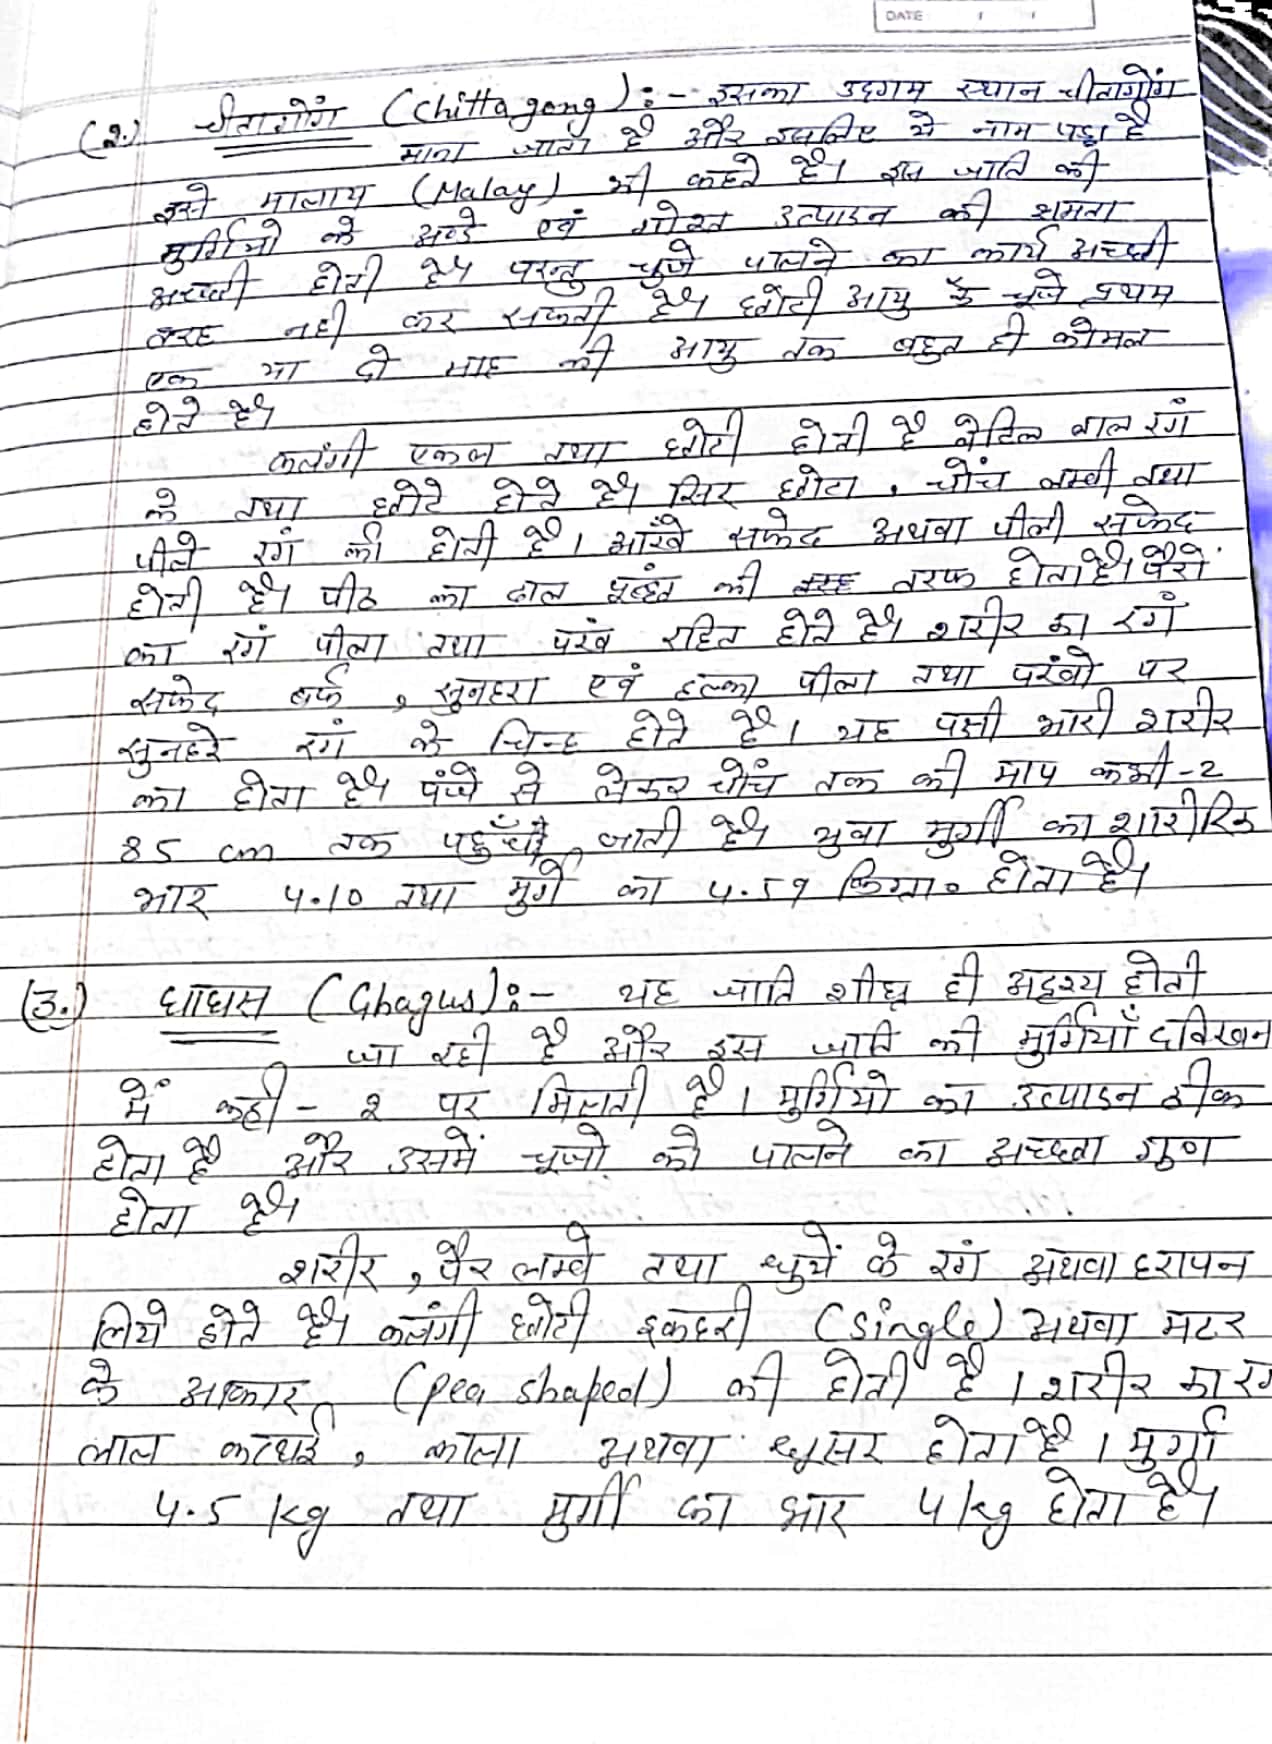 DATE
(2.) चीतागोंग (Chittagong) :- इसका उदगम स्थान चीतागोंग
माना जाता है और इसलिए ये नाम पड़ा है
इसे मालाय (Malay) भी कहते है। इस जाति की
मुर्गियो के अण्डे एवं गोश्त उत्पादन की क्षमता
अच्छी होती है। परन्तु चूजे पालने का कार्य अच्छी
तरह नही कर सकती है। छोटी आयु के चूजे प्रथम
एक या दो माह की आयु तक बहुत ही कोमल
होते है।
कलंगी एकल तथा छोटी होती है वेटिल लाल रंग
के तथा छोटे होते है। सिर छोटा, चोंच लम्बी तथा
पीले रंग की होती है। आँखे सफेद अथवा पीली सफेद
होती है। पीठ का ढाल पूछं की तरफ होता है। पैरो
का रंग पीला तथा पंख रहित होते है। शरीर का रंग
सफेद बर्फ, सुनहरा एवं हल्का पीला तथा पंखो पर
सुनहरे रंग के चिन्ह होते है। यह पक्षी भारी शरीर
का होता है। पंजे से लेकर चोंच तक की माप कभी-2
85 cm तक पहुँच जाती है। युवा मुर्गी का शारीरिक
भार 4.10 तथा मुर्गे का 4.59 किग्रा० होता है।
(3.) घाघस (Ghagus) :- यह जाति शीघ्र ही अदृश्य होती
जा रही है और इस जाति की मुर्गियाँ दक्खिन
में कही - २ पर मिलती है। मुर्गियो का उत्पादन ठीक
होता है और उसमें चूजो को पालने का अच्छा गुण
होता है।
शरीर, पैर लम्बे तथा धुयें के रंग अथवा हरापन
लिये होते है। कलंगी छोटी इकहरी (single) अथवा मटर
के आकार (pea shaped) की होती है। शरीर का रंग
लाल कत्थई, काला अथवा धूसर होता है। मुर्गा
4.5 kg तथा मुर्गी का भार 4 kg होता है।